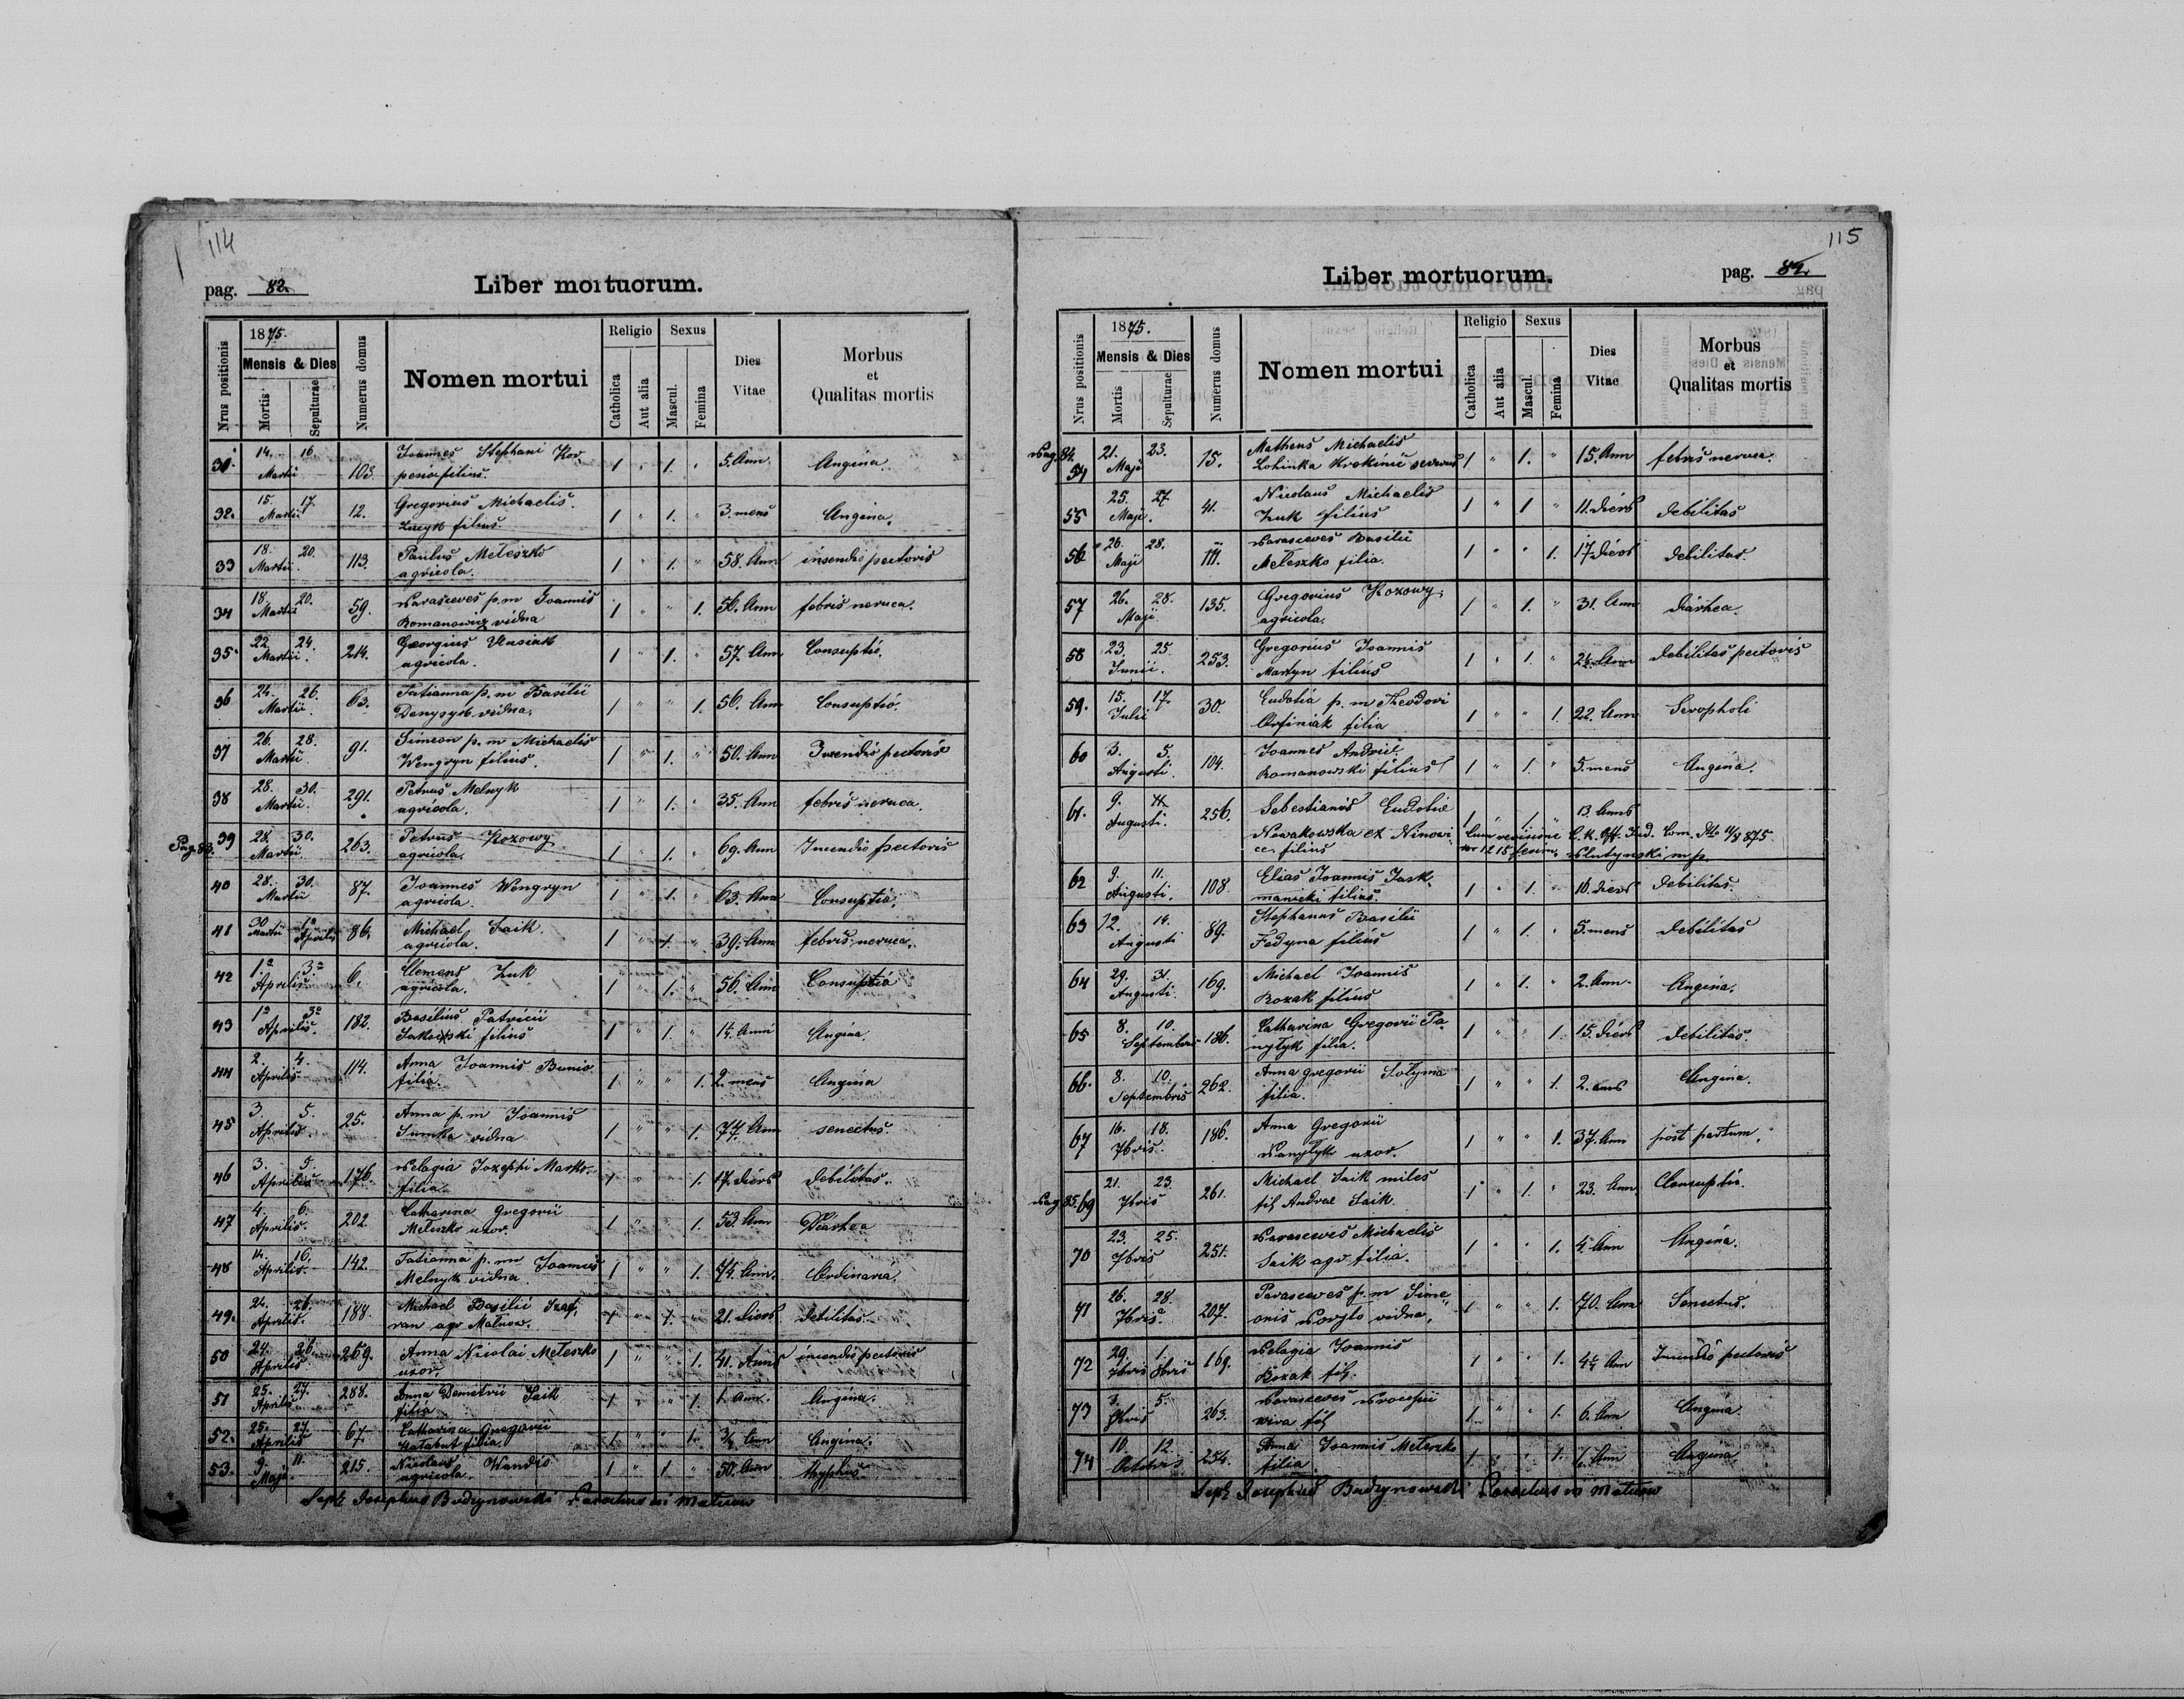 114
pag. 82.
Liber mortuorum.
Nrus positionis
1875.
Mensis & Dies
Mortis
Sepulturae
Numerus domus
Nomen mortui
Religio
Catholica
Aut alia
Sexus
Mascul.
Femina
Dies Vitae
Morbus et Qualitas mortis
31. 14. 16. Martii 103. Joannes Stephani filius. 1 " 1. " 5. Ann Angina.
32. 15. 17. Martii 12. Gregorius Michaelis filius. 1 " 1. " 3. mens Angina.
33 18. 20. Martii. 113. Paulus Meteszko agricola. 1 " 1. " 58. Ann insendio pectoris
34 18. 20. Martii 59. Parasceves p.m Joannis Romanowicz vidna 1 " " 1. 56. Ann febris nervea.
35. 22. 24. Martii. 214. Georgius agricola. 1 " 1. " 57. Ann Consuptio.
36 24. 26. Martii. 63. Tatianna p.m Basilii Denysyk vidna. 1 " " 1. 56. Ann Consuptio.
37 26. 28. Martii 91. Simeon p.m Michaelis Wengryn filius. 1 " 1. " 50. Ann Incendio pectoris
38 28. 30. Martii. 291. Petrus Melnyk agricola. 1 " 1. " 35. Ann febris nervea.
Pag 83. 39 28. 30. Martii. 263. Petrus Kozowy agricola. 1 " 1. " 69. Ann Incendio pectoris
40 28. 30. Martii 87. Joannes Wengryn agricola. 1 " 1. " 63. Ann Consuptio.
41 30 Martii 1a Aprilis 86. Michael Saik agricola. 1 " 1. " 39. Ann febris nervea.
42 1.a 3.a Aprilis. 6. Clemens Zuk agricola. 1 " 1. " 56. Ann Consuptio
43 1a 3a Aprilis. 182. Basilius Patricii filius 1 " 1. " Anni Angina.
44 2. 4. Aprilis. 114. Anna Joannis Bunio filia. 1 " " 1. 2. mens Angina
45 3. 5. Aprilis. 25. Anna p.m Joannis vidna 1 " " 1. 74. Ann senectus.
46 3. 5. Aprilis 176. Pelagia Jozephi Marko filia. 1 " " 1. 17. diers debilitas.
47 4. 6. Aprilis. 202. Catharina Gregorii Meteszko uxor. 1 " " 1. 53. Ann Diarhea
48 14. 16. Aprilis. 142. Tatianna p.m Joannis Melnyk vidna. 1 " " 1. 75. Ann. Ordinaria.
49. 24. 26. Aprilis. 188. Michael Basilii 1 " 1. " 21. diers debilitas.
50 24. 26. Aprilis 269. Anna Nicolai Meteszko uxor. 1 " " 1. 41. Anns incendio pectoris
51 25. 27. Aprilis 288. Anna Demetrii Saik filia 1 " " 1. 1. Ann. Angina.
52. 25. 27. Aprilis 67. Catharina Gregorii filia. 1 " " 1. Ann Angina.
53. 9. 11. Maji. 215. Nicolaus Kandio agricola. 1 " 1. " 50. Ann thyphus
Josephus Budzynowski Parochus in Matuow
115
Liber mortuorum.
pag. 84.
Nrus positionis
1875.
Mensis & Dies
Mortis
Sepulturae
Numerus domus
Nomen mortui
Religio
Catholica
Aut alia
Sexus
Mascul.
Femina
Dies Vitae
Morbus et Qualitas mortis
Pag. 84. 54 21. 23. Maji 15. Matheus Michaelis servus 1 " 1. " 15. Ann febris nervea.
55 25. 27. Maji. 41. Nicolaus Michaelis Zuk filius 1 " 1 " 11. diers debilitas
56 26. 28. Maji 111. Parasceves Basilii Meteszko filia. 1 " " 1. 17. diers debilitas.
57 26. 28. Maji 135. Gregorius Kozowy agricola. 1 " 1. " 31. Ann diarhea.
58 23. 25. Junii. 253. Gregorius Joannis Martyn filius 1 " 1. " Ann debilitas pectoris
59. 15. 17. Julii 30. Eudotia p.m Theodori Orfiniak filia 1 " " 1. 22. Ann Scropholi
60 3. 5. Augusti. 104. Joannes Andreae Romanowski filius 1 " 1. " 5. mens Angina.
61. 9. 11. Augusti. 256. Sebestianus Eudotiae Nowakowska et filius 1 " 1. " 13. Anns
62 9. 11. Augusti. 108. Elias Joannis filius. 1 " 1. " 10. diers debilitas.
63 12. 14. Augusti 89. Stephanus Basilii Fedyna filius 1 " 1. " 5. mens debilitas
64 29. 31. Augusti. 169. Michael Joannis Kozak filius 1 " 1. " 2. Ann. Angina.
65 8. 10. Septembris 186. Catharina Gregorii Panytyk filia. 1 " " 1. 15. diers debilitas.
66. 8. 10. Septembris 262. Anna gregorii Sotyma filia. 1 " " 1. 2. anns Angina.
67 16. 18. 7bris. 186. Anna Gregorii Panytyk uxor. 1 " " 1. 37. Ann post partum.
Pag 85. 69 21. 23. 7bris 261. Michael Saik miles fil Andreae Saik. 1 " 1. " 23. Ann. Consuptio.
70 23. 25. 7bris 251. Parasceves Michaelis Saik agr. filia. 1 " " 1. Ann Angina.
71 26. 28. 7bris 207. Parasceves p.m Simeonis vidna. 1 " " 1. 70. Ann Senectus.
72 29. 7bris 1. 8bris 169. Pelagia Joannis Kozak fil. 1 " " 1. Ann Incendio pectoris
73 3. 5. 8bris 263. Parasceves fil 1 " " 1. 6. Ann Angina.
74 10. 12. Octobris 254. Anna Joannis Meteszko filia 1 " " 1. Ann Angina.
Josephus Budzynowski Parochus in Matuow